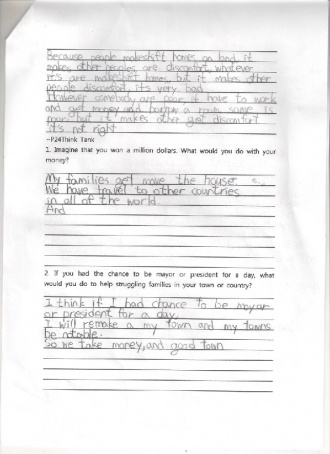 Because people makeshift homes on land, it
makes other peoples are discomfort, whatever
it's are makeshift homes, but it makes other
people discomfort, it's very bad.
However somebody are poor, it have to work
and get money and a room, some is
poor but it makes other get discomfort
it's not right
~P24Think Tank
1. Imagine that you won a million dollars. What would you do with your
money?
My families get move the house.
We have travel to other countries
in all of the world.
And
2. If you had the chance to be mayor or president for a day, what
would you do to help struggling families in your town or country?
I think if I had chance to be mayor
or president for a day,
I will remake a my town and my towns
be notable.
So we take money, and good town